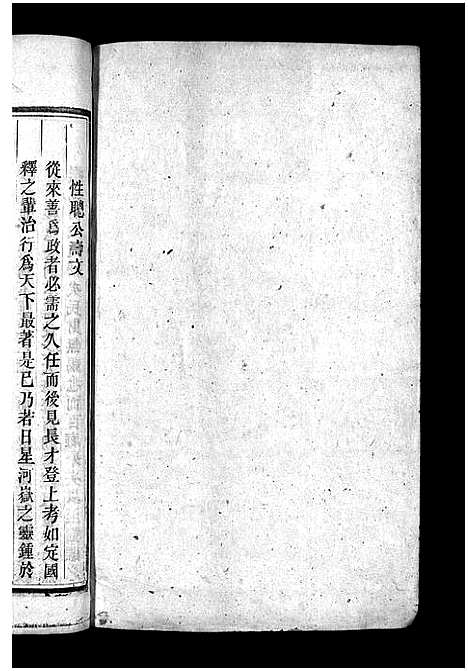 性聰公壽文
從來善爲政者必需之久任而後見長才登上考如定國
釋之輩治行爲天下最著是已乃若日星河嶽之靈鍾於